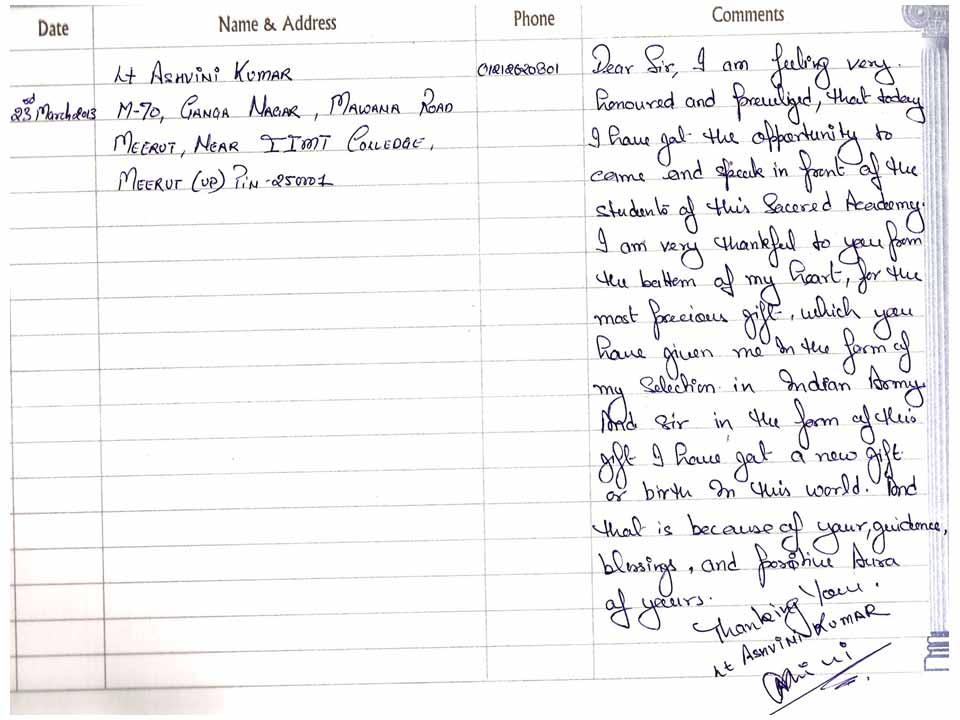 Date Name & Address Phone Comments
23rd March 2013
Lt ASHVINI KUMAR
M-70, GANGA NAGAR, MAWANA ROAD
MEERUT, NEAR IIMT COLLEDGE,
MEERUT (UP) PIN-250001
01218620801
Dear Sir, I am feeling very
honoured and previliged, that today
I have got the opportunity to
come and speak in front of the
students of this Sacered Academy.
I am very thankful to you from
the bottom of my heart, for the
most precious gift, which you
have given me in the form of
my Selection in Indian Army
And sir in the form of this
gift I have got a new gift
or birth in this world. And
that is because of your, guidence,
blessings, and positive Aura
of yours.
Thanking You.
Lt ASHVINI KUMAR